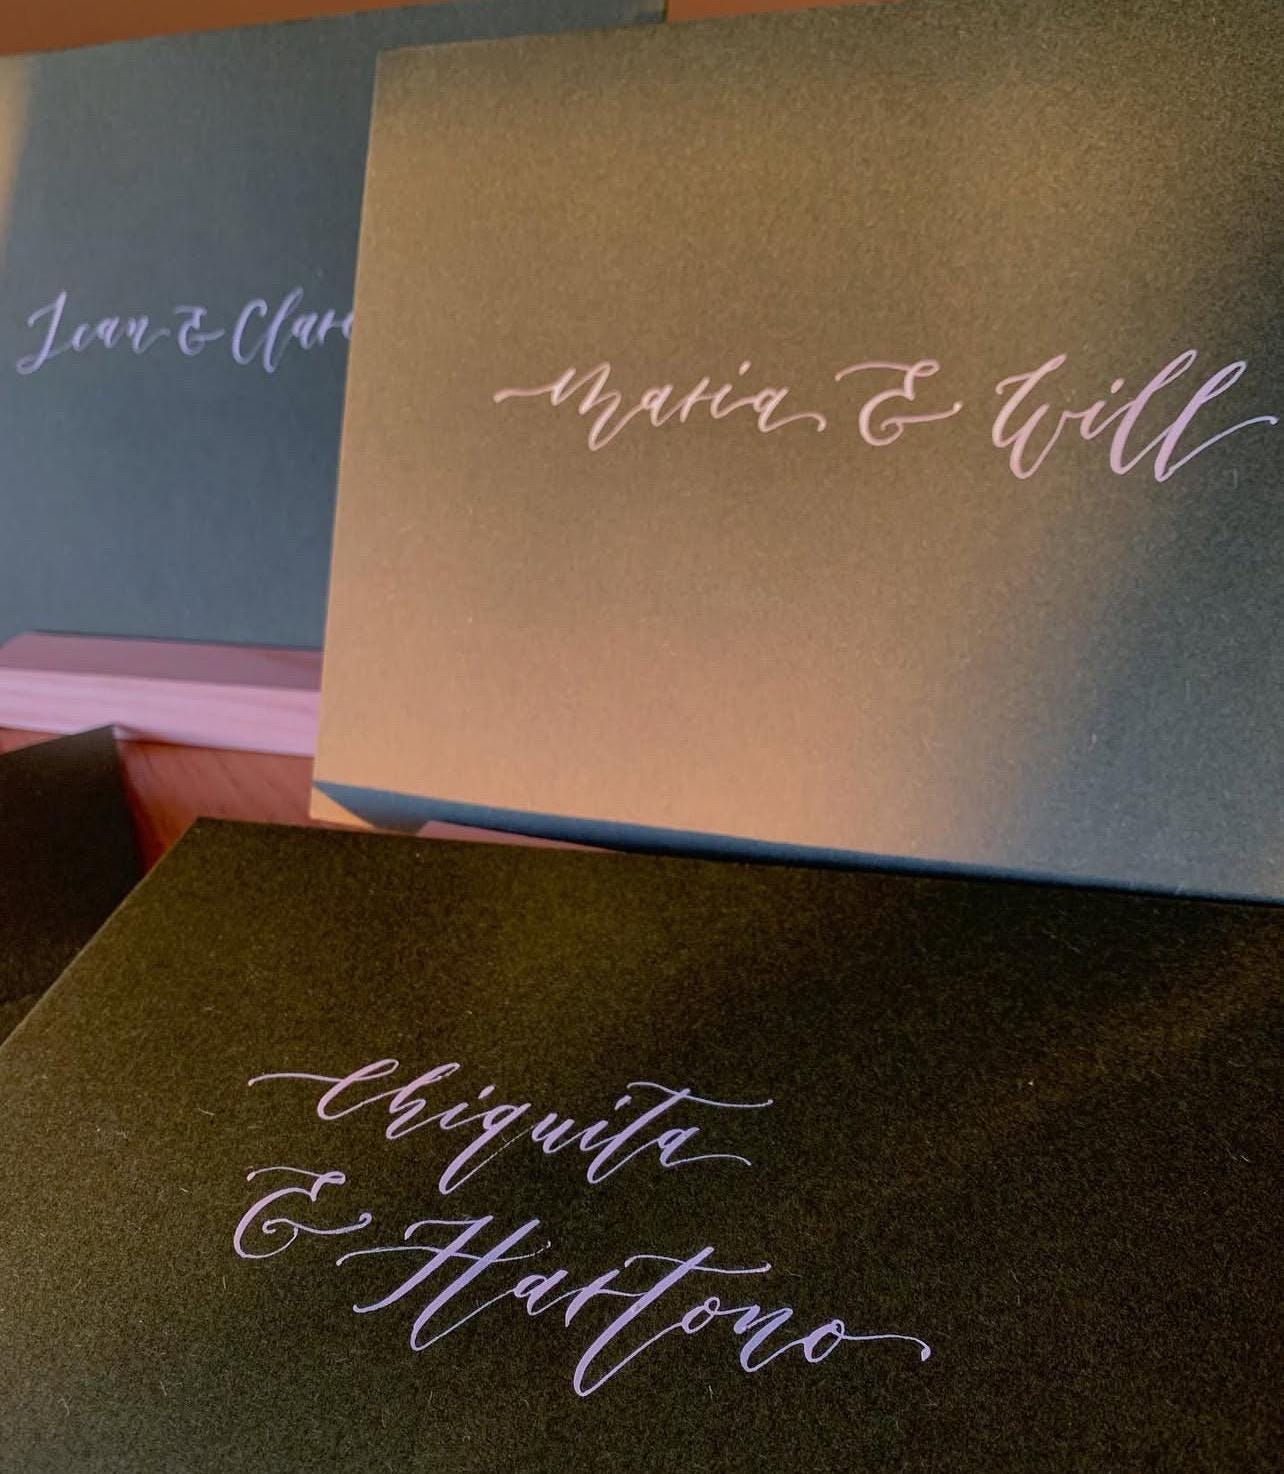 Jean & Clare
Maria & Will
Chiquita
& Hartono